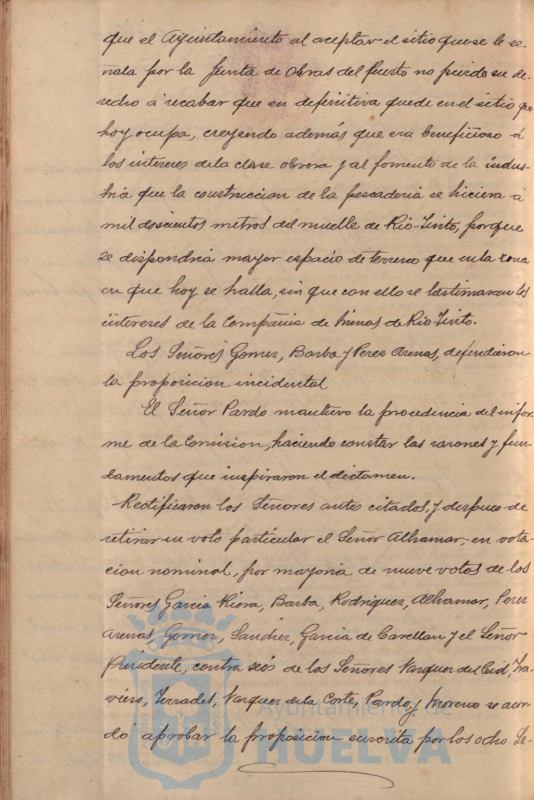 que el Ayuntamiento al aceptar el sitio que se le se-
ñala por la Junta de Obras del Puerto no pierde su de-
recho á recabar que en definitiva quede en el sitio que
hoy ocupa, creyendo además que era beneficioso á
los intereses de la clase obrera y al fomento de la indus-
tria que la construccion de la pescaderia se hiciera á
mil doscientos metros del muelle de Rio-Tinto, porque
se dispondria mayor espacio de terreno que en la zona
en que hoy se halla, sin que con ello se lastimaran los
intereses de la Compañia de Minas de Rio-Tinto.
Los Señores Gomez, Barba y Perez Arenas, defendieron
la proposicion incidental
El Señor Pardo mantuvo la procedencia del infor-
me de la Comision, haciendo constar las razones y fun-
damentos que inspiraron el dictamen.
Rectificaron los Señores antes citados, y despues de
retirar su voto particular el Señor Alhamar, en vota-
cion nominal, por mayoria de nueve votos de los
Señores Garcia Riera, Barba, Rodriguez, Alhamar, Perez
Arenas, Gomez, Sanchez, Garcia de Carellan y el Señor
Presidente, contra seis de los Señores Vazquez del Cid, Tra-
vieso, Terradel, Vazquez de la Corte, Pardo y Moreno se acor-
dó aprobar la proposicion suscrita por los ocho Se-
Ayuntamiento de
HUELVA